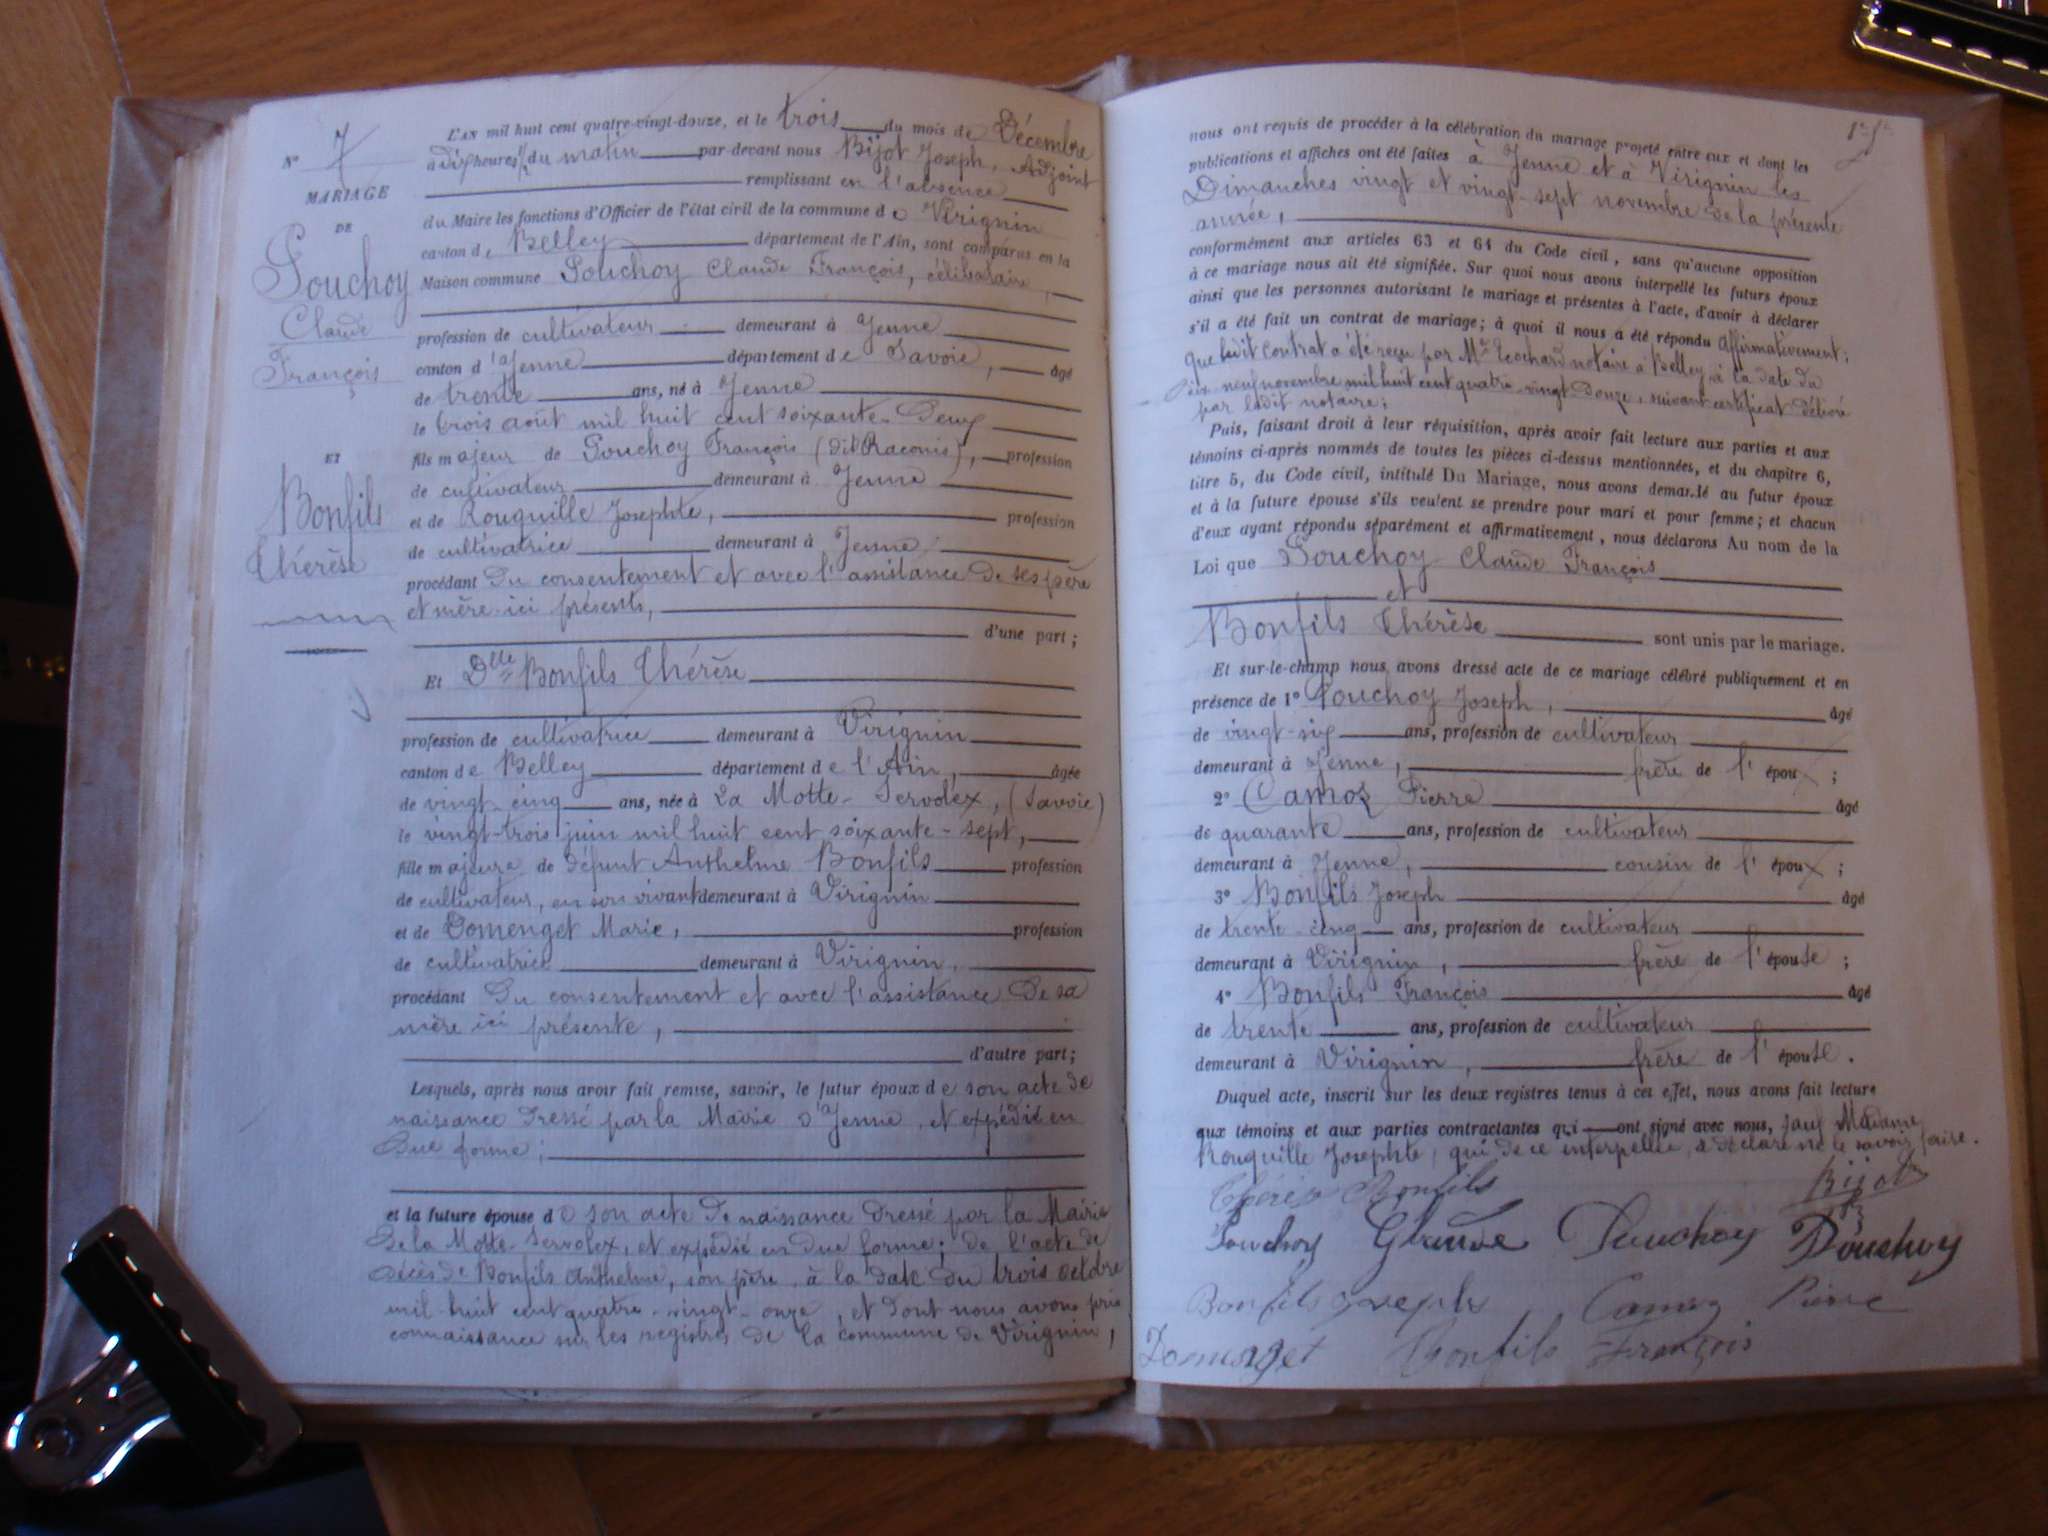 L'AN mil huit cent quatre-vingt-douze, et le trois du mois de Décembre
N° 7
à dix heures du matin par devant nous Bijot Joseph, Adjoint
MARIAGE
remplissant en l'absence
DE
du Maire les fonctions d'Officier de l'état civil de la commune de Virignin
canton de Belley département de l'Ain, sont comparus en la
Pouchoy
Maison commune Pouchoy Claude François, célibataire,
Claude
profession de cultivateur demeurant à Yenne
François
canton d'Yenne département de Savoie, âgé
de trente ans, né à Yenne
le trois août mil huit cent soixante-deux
ET
fils majeur de Pouchoy François (dit Raconis), profession
de cultivateur demeurant à Yenne
Bonfils
et de Rouquille Josephte, profession
Thérèse
de cultivatrice demeurant à Yenne
procédant du consentement et avec l'assistance de ses père
et mère ici présents,
d'une part ;
Et Dlle Bonfils Thérèse
profession de cultivatrice demeurant à Virignin
canton de Belley département de l'Ain, âgée
de vingt-cinq ans, née à La Motte-Servolex, (Savoie)
le vingt-trois juin mil huit cent soixante-sept,
fille majeure de défunt Anthelme Bonfils profession
de cultivateur, en son vivant demeurant à Virignin
et de Domenget Marie, profession
de cultivatrice demeurant à Virignin,
procédant du consentement et avec l'assistance de sa
mère ici présente,
d'autre part ;
Lesquels, après nous avoir fait remise, savoir, le futur époux de son acte de
naissance dressé par la Mairie d'Yenne, et expédié en
due forme ;
et la future épouse de son acte de naissance dressé par la Mairie
de la Motte-Servolex, et expédié en due forme ; de l'acte de
décès de Bonfils Anthelme, son père, à la date du trois octobre
mil huit cent quatre-vingt-onze, et dont nous avons pris
connaissance sur les registres de la commune de Virignin,
nous ont requis de procéder à la célébration du mariage projeté entre eux et dont les
publications et affiches ont été faites à Yenne et à Virignin les
Dimanches vingt et vingt-sept novembre de la présente
année,
conformément aux articles 63 et 64 du Code civil, sans qu'aucune opposition
à ce mariage nous ait été signifiée. Sur quoi nous avons interpellé les futurs époux
ainsi que les personnes autorisant le mariage et présentes à l'acte, d'avoir à déclarer
s'il a été fait un contrat de mariage ; à quoi il nous a été répondu Affirmativement ;
que ledit contrat a été reçu par Me notaire à Belley, à la date du
dix neuf novembre mil huit cent quatre-vingt-douze, suivant certificat délivré
par ledit notaire ;
Puis, faisant droit à leur réquisition, après avoir fait lecture aux parties et aux
témoins ci-après nommés de toutes les pièces ci-dessus mentionnées, et du chapitre 6,
titre 5, du Code civil, intitulé Du Mariage, nous avons demandé au futur époux
et à la future épouse s'ils veulent se prendre pour mari et pour femme ; et chacun
d'eux ayant répondu séparément et affirmativement, nous déclarons Au nom de la
Loi que Pouchoy Claude François
et
Bonfils Thérèse sont unis par le mariage.
Et sur-le-champ nous avons dressé acte de ce mariage célébré publiquement et en
présence de 1° Pouchoy Joseph, âgé
de vingt-six ans, profession de cultivateur
demeurant à Yenne, frère de l'époux ;
2° Camoz Pierre âgé
de quarante ans, profession de cultivateur
demeurant à Yenne, cousin de l'époux ;
3° Bonfils Joseph âgé
de trente-cinq ans, profession de cultivateur
demeurant à Virignin, frère de l'épouse ;
4° Bonfils François âgé
de trente ans, profession de cultivateur
demeurant à Virignin, frère de l'épouse.
Duquel acte, inscrit sur les deux registres tenus à cet effet, nous avons fait lecture
aux témoins et aux parties contractantes qui ont signé avec nous, sauf Madame
Rouquille Josephte, qui de ce interpellée, a déclaré ne le savoir faire.
Thérèse Bonfils Bijot
Pouchoy Glaude Pouchoy Pouchoy
Bonfils Joseph Camoz Pierre
Domenget Bonfils François